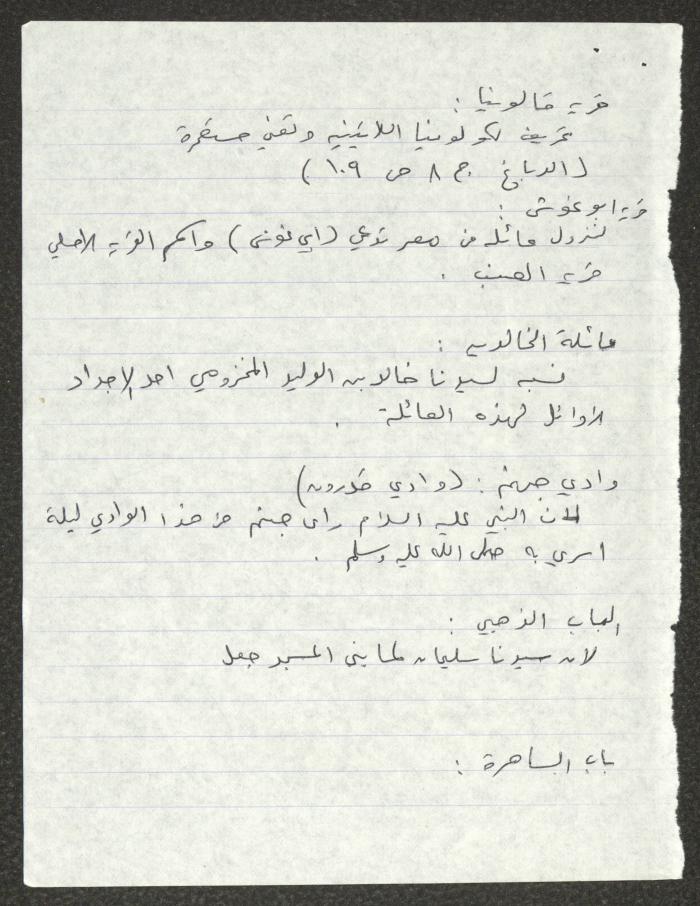 قرية قالونيا :
تحريف لكولونيا اللاتينية وتعني مستعمرة
( الدباغ ج ٨ ص ١٠٩ )
قرية ابو غوش :
لنزول عائلة من مصر تدعى ( ابي غوش ) واسم القرية الاصلي
قرية العنب .
عائلة الخالدي :
نسبه لسيدنا خالد بن الوليد المخزومي احد الاجداد
الاوائل لهذه العائلة .
وادي جهنم : ( وادي قدرون )
لان النبي عليه السلام راى جهنم من هذا الوادي ليلة
اسري به صلى الله عليه وسلم .
الباب الذهبي :
لان سيدنا سليمان لما بنى المسجد جعل
باب الساهرة :